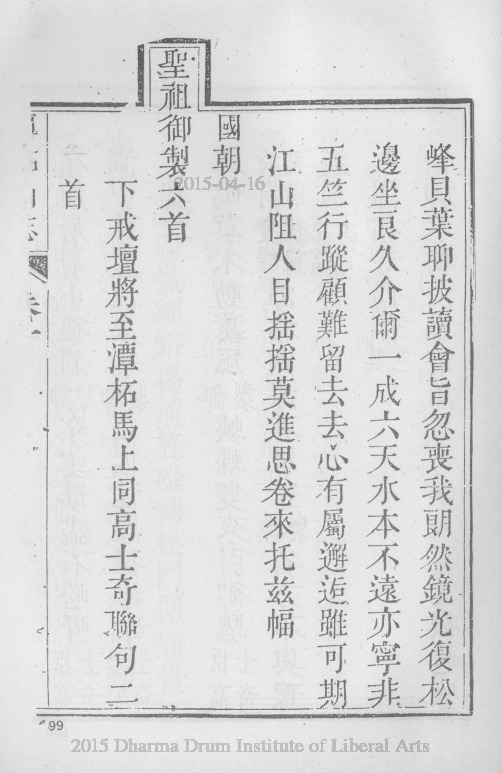 峰貝葉聊披讀會旨忽喪我朗然鏡光復松
邊坐良久介爾一成六天水本不遠亦寧非
五竺行蹤顧難留去去心有屬邂逅雖可期
江山阻人目揺揺莫進思卷來托茲幅
國朝
聖祖御製六首
下戒壇將至潭柘馬上同高士奇聯句二
首
2015-04-16
99
2015 Dharma Drum Institute of Liberal Arts